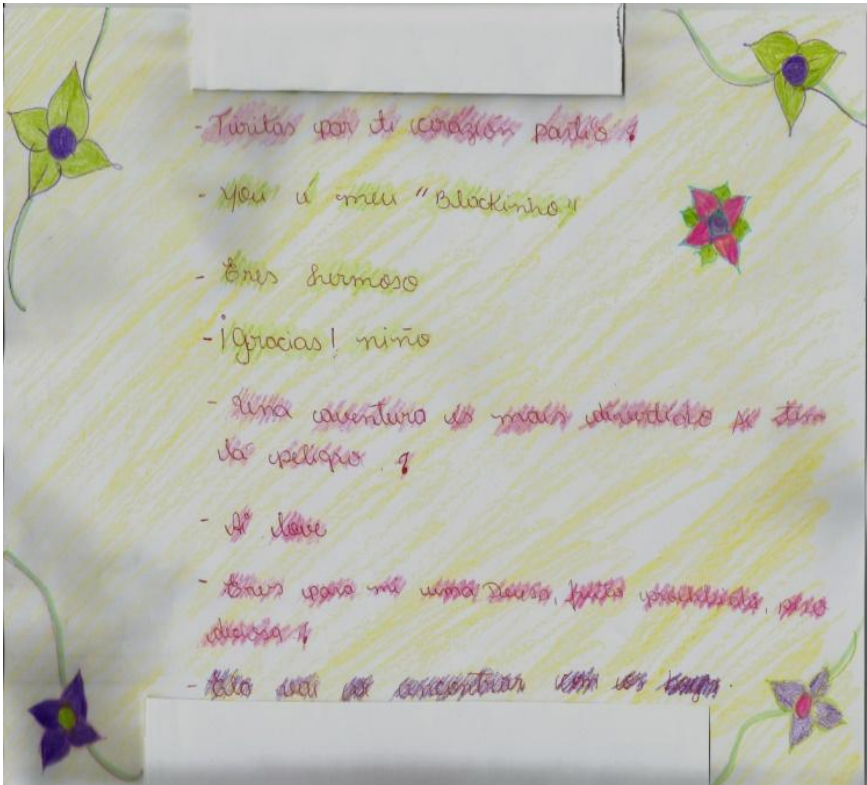 - Tiritas por ti corazón partio !
- You é meu "Blackinho"
- Eres hermoso
- ¡Gracias! niño
- Una aventura és mais divertido se tem
lá peligro !
- Ai love
- Eres para mi uma Deusa, pero
- Ela vai se encontrar com os